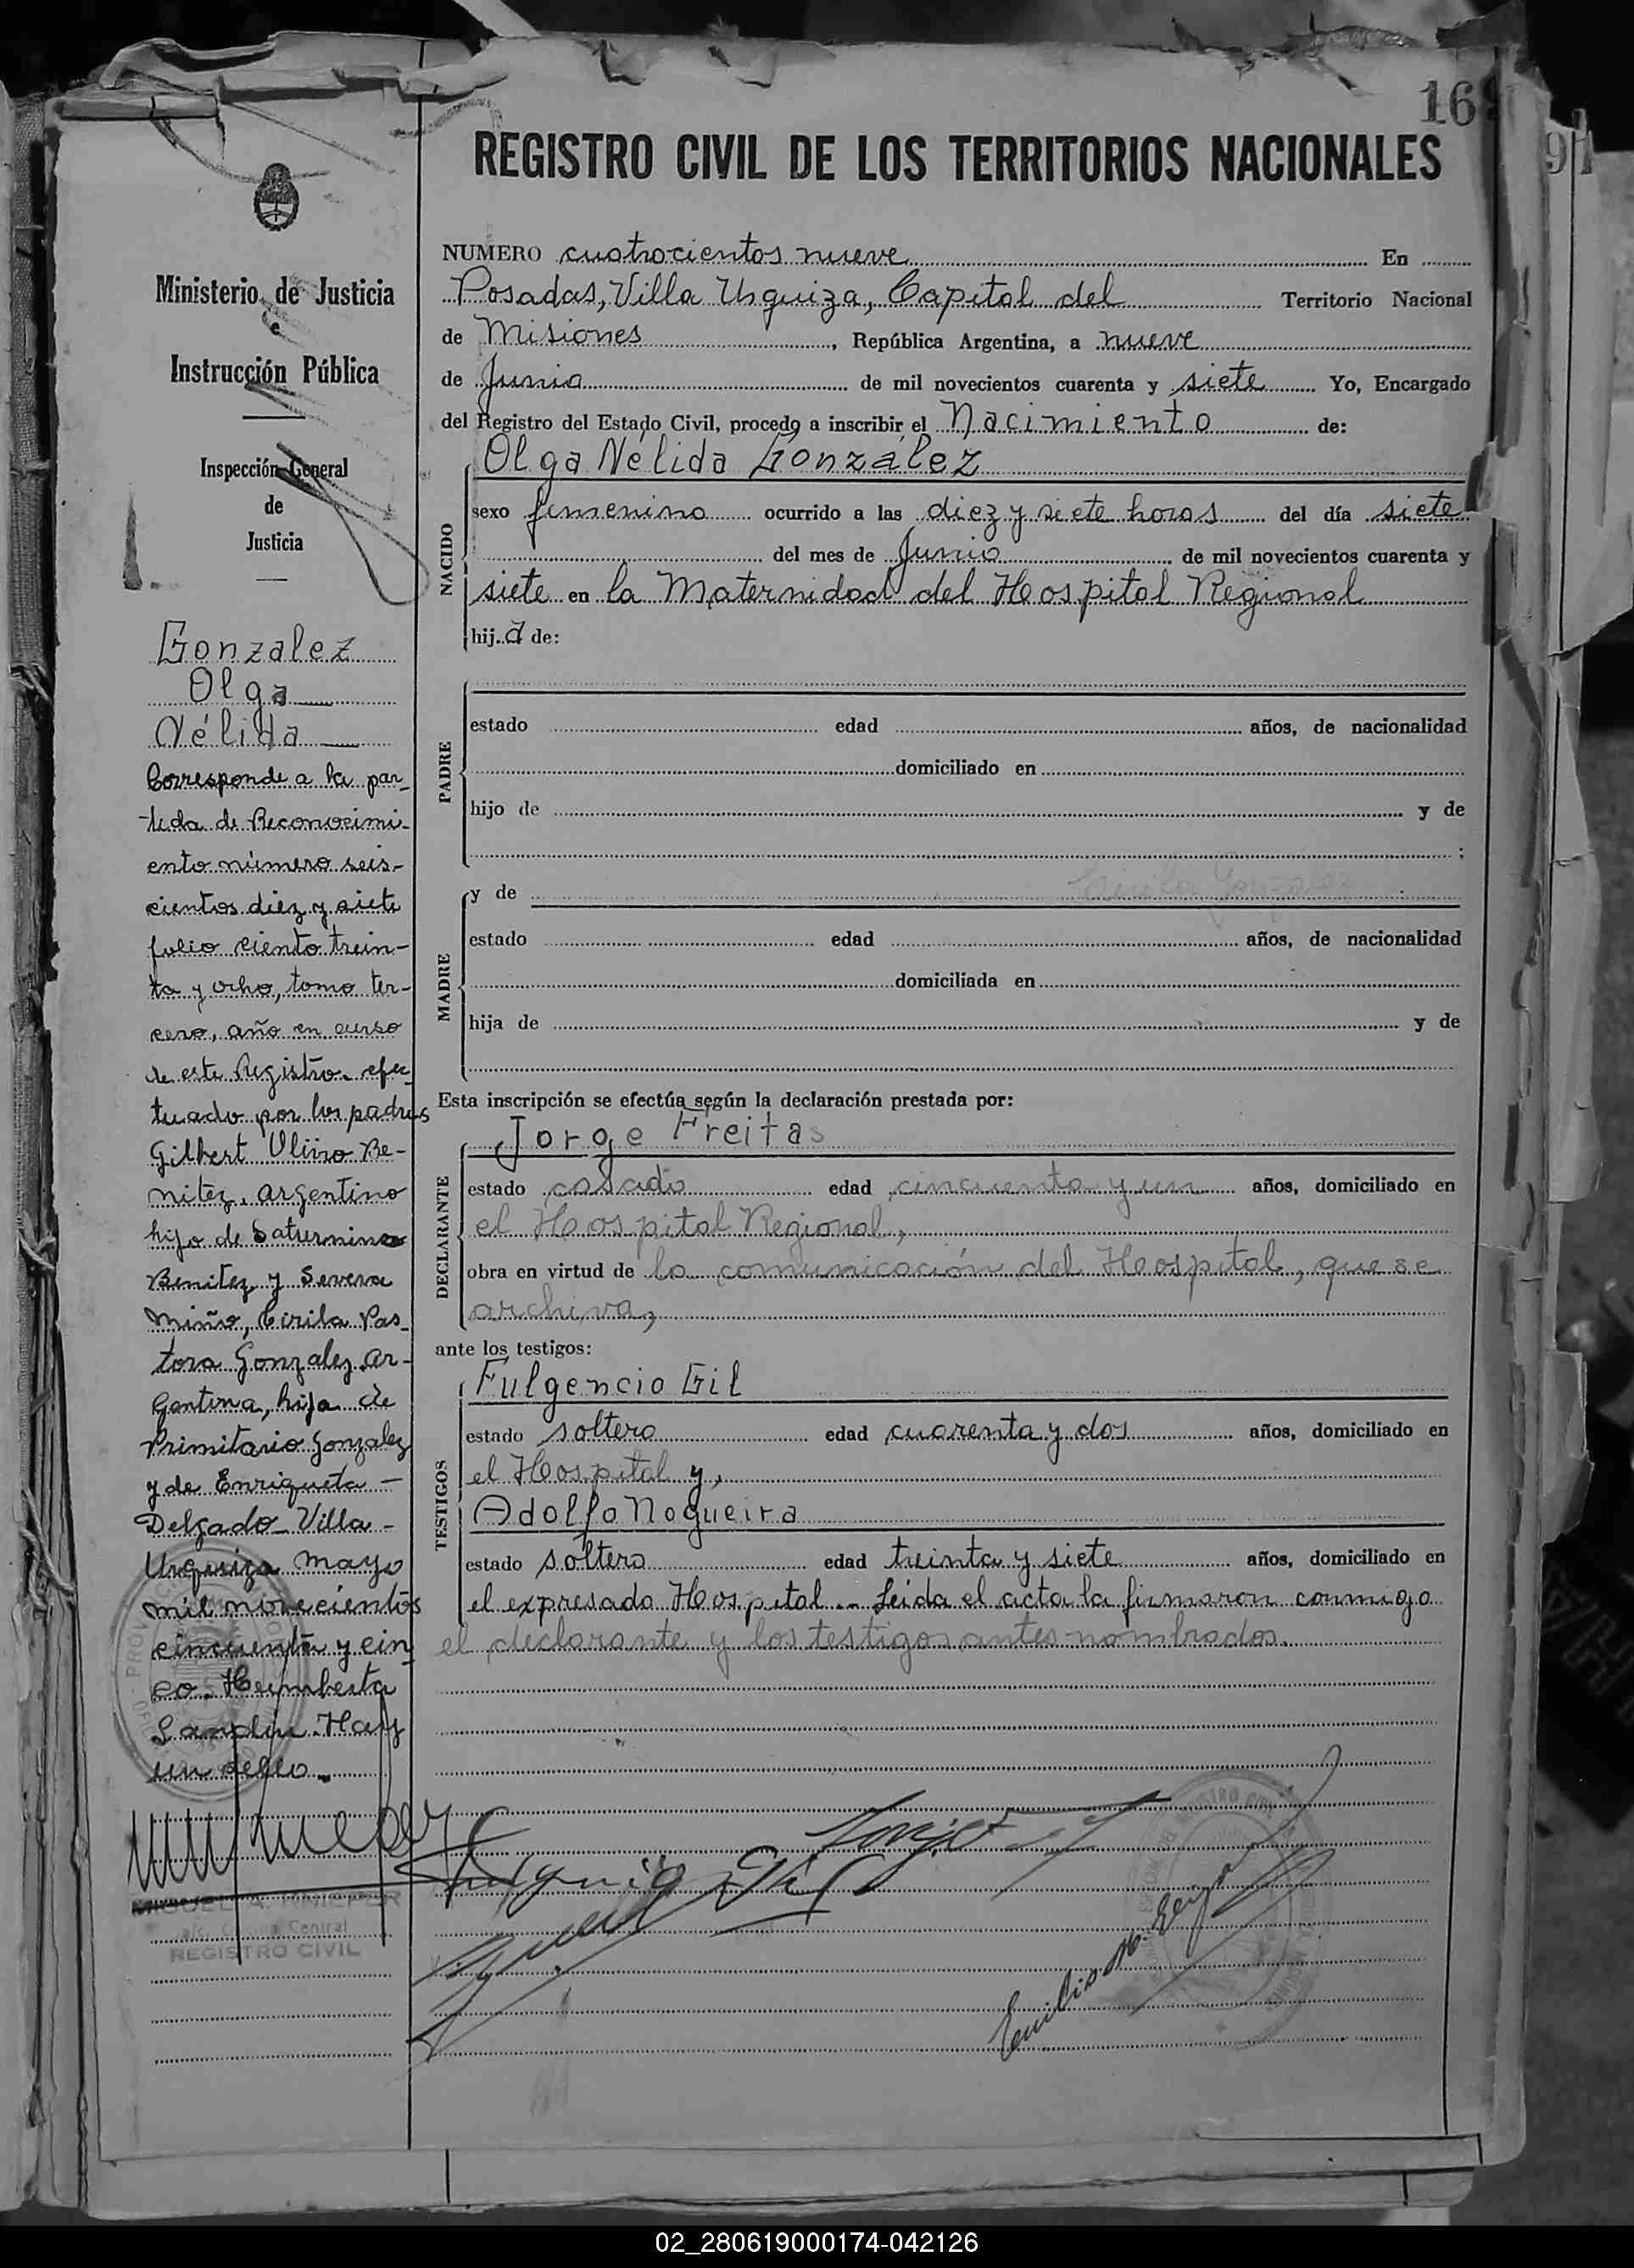 16
REGISTRO CIVIL DE LOS TERRITORIOS NACIONALES
Ministerio de Justicia
e
Instrucción Pública
Inspección General
de
Justicia
Gonzalez
Olga
Nélida
Corresponde a la par-
tida de Reconocimi-
ento número seis-
cientos diez y siete
folio ciento trein-
ta y ocho, tomo ter-
cero, año en curso
de este Registro. efec-
tuado por los padres
Gilbert Be-
nitez, argentino
hijo de Saturnino
Benitez y Severa
Miño, Cirila Pas-
tora Gonzalez ar-
gentina, hija de
Primitario Gonzalez
y de Enriqueta -
Delgado - Villa -
Urquiza mayo
mil novecientos
cincuenta y cin
co. Humberta
Hay
un sello.
a/c. Oficina Central
REGISTRO CIVIL
NUMERO cuatrocientos nueve En
Posadas, Villa Urquiza, Capital del Territorio Nacional
de Misiones, República Argentina, a nueve
de Junio de mil novecientos cuarenta y siete Yo, Encargado
del Registro del Estado Civil, procedo a inscribir el Nacimiento de:
NACIDO
Olga Nélida González
sexo femenino ocurrido a las diez y siete horas del día siete
del mes de Junio de mil novecientos cuarenta y
siete en la Maternidad del Hospital Regional
hija de:
PADRE
estado edad años, de nacionalidad
domiciliado en
hijo de y de
;
MADRE
y de Cirila Gonzalez
estado edad años, de nacionalidad
domiciliada en
hija de y de
Esta inscripción se efectúa según la declaración prestada por:
DECLARANTE
Jorge Freitas
estado casado edad cincuenta y un años, domiciliado en
el Hospital Regional,
obra en virtud de la comunicación del Hospital, que se
archiva,
ante los testigos:
TESTIGOS
Fulgencio Gil
estado soltero edad cuarenta y dos años, domiciliado en
el Hospital y,
Adolfo Nogueira
estado soltero edad treinta y siete años, domiciliado en
el expresado Hospital.-- Leída el acta la firmaron conmigo
el declarante y los testigos antes nombrados.
Emilio
02_280619000174-042126